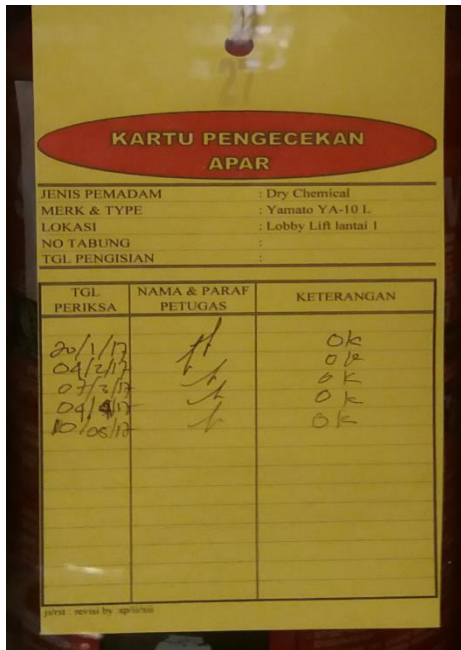 27
KARTU PENGECEKAN
APAR
JENIS PEMADAM : Dry Chemical
MERK & TYPE : Yamato YA-10 L
LOKASI : Lobby Lift lantai 1
NO TABUNG :
TGL PENGISIAN :
TGL PERIKSA NAMA & PARAF PETUGAS KETERANGAN
20/1/17 OK
04/2/17 OK
07/3/17 OK
04/4/17 OK
10/05/17 OK
revisi by